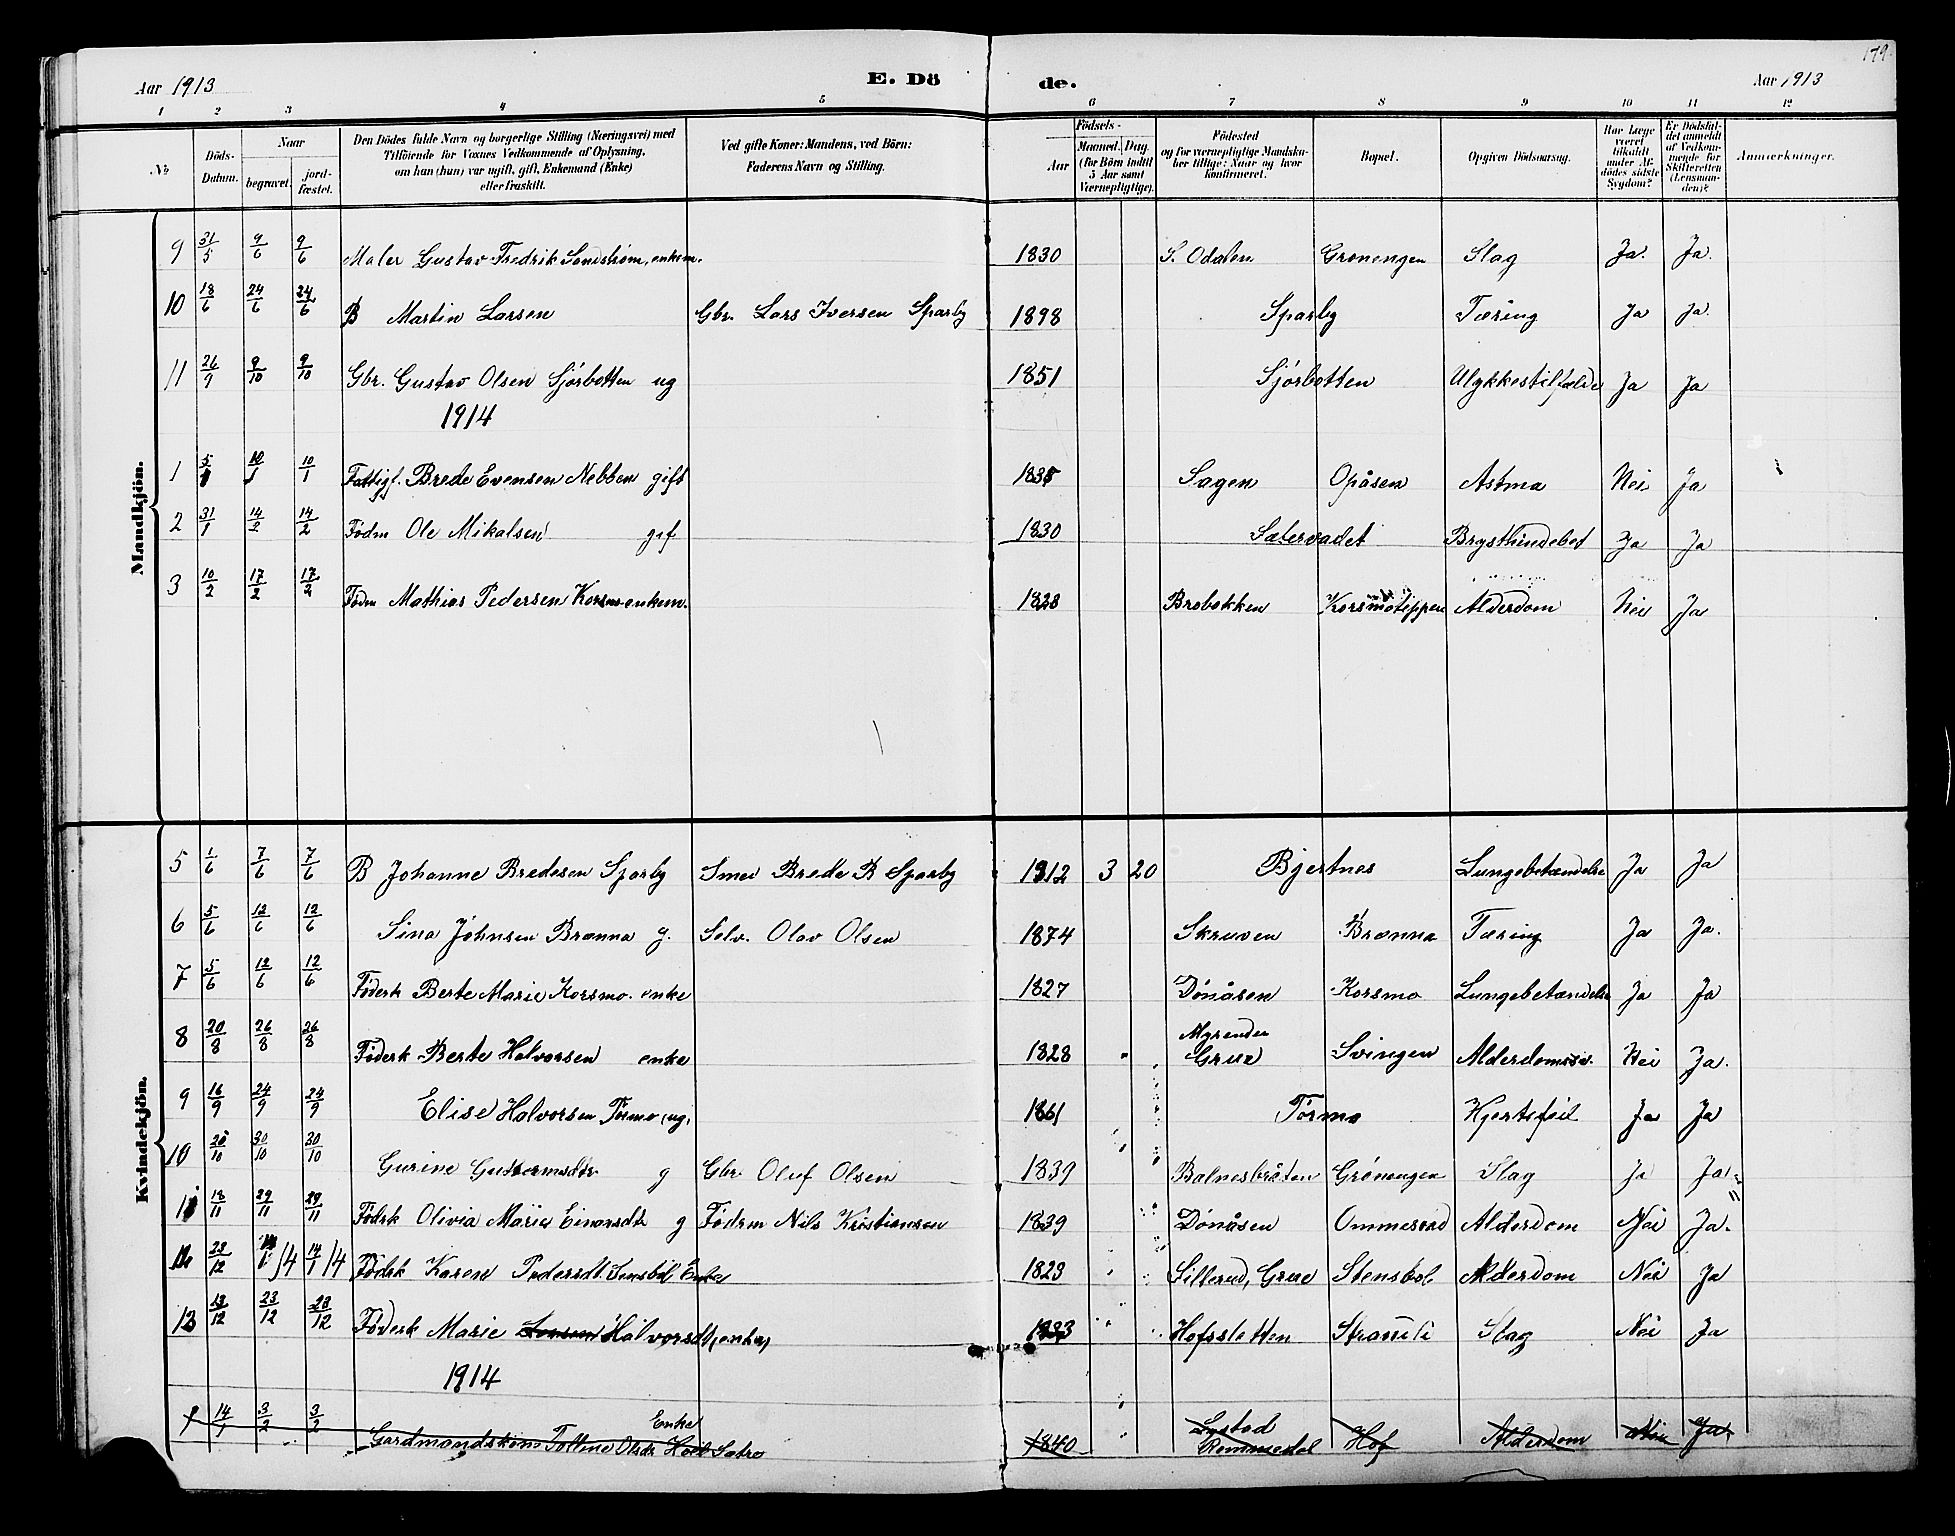 179.
Aar 1913 E. Dö de. Aar 1913
1 2 3 4 5 6 7 8 9 10 11 12
No
Döds-Datum.
Naar
begravet.
jord-fæstet.
Den Dödes fulde Navn og borgerlige Stilling (Næringsvei) med
Tilföiende for Voxnes Vedkommende af Oplysning,
om han (hun) var ugift, gift, Enkemand (Enke)
eller fraskilt.
Ved gifte Koner: Mandens, ved Börn:
Faderens Navn og Stilling.
Födsels-
Aar
Maaned. Dag.
(for Börn indtil
5 Aar samt
Værnepligtige).
Födested
og for værnepligtige Mandska-
ber tillige: Naar og hvor
konfirmeret.
Bopæl.
Opgiven Dödsaarsag.
Har Læge
været
tilkaldt
under Af-
dödes sidste
Sygdom?
Er Dödsfal-
det anmeldt
af Vedkom-
mende for
Skifteretten
(Lensman-
den)?
Anmærkninger.
Mandkjön.
9 31/5 9/6 9/6 Maler Gustav Fredrik Sandstrøm, enkem. 1830 S. Odalen Gronengen Slag Ja. Ja.
10 18/6 24/6 24/6 B Martin Larsen Gbr. Lars Iversen Sparby 1898 Sparby Tæring Ja Ja.
11 26/9 9/10 9/10 Gbr. Gustav Olsen Sjørbotten ug 1851 Sjørbotten Ulykkestilfælde Ja Ja
1914
1 5/1 10/1 10/1 Fattigf. Brede Evensen Nebben gift 1835 Sagen Opåsen Astma Nei Ja
2 31/1 14/2 14/2 Fødm Ole Mikalsen gif 1830 Sætervadet Brysthindebet Ja Ja
3 10/2 17/2 17/2 Fødm Mathias Pedersen Korsmo enkem. 1828 Brobakken Korsmoteppen Alderdom Nei Ja
Kvindekjön.
5 1/6 7/6 7/6 B Johanne Bredesen Sparby Smed Brede B Sparby 1912 3 20 Bjertnes Lungebetændelse Ja Ja
6 5/6 12/6 12/6 Sina Johnsen Brænna g. Selv. Olav Olsen 1874 Skruven Brænna Tæring Ja Ja.
7 5/6 12/6 12/6 Føderk Berte Marie Korsmo. enke 1827 Dönåsen Korsmo Lungebetændelse Ja Ja
8 20/8 26/8 26/8 Føderk Berte Halvorsen enke 1828 Myrender Grue Svingen Alderdomssv. Nei Ja.
9 16/9 24/9 24/9 Elise Halvorsen Tørmo, ug, 1861 Tørmo Hjertefeil Ja Ja
10 20/10 30/10 30/10 Gurine Guttormsdtr g Gbr. Oluf Olsen 1839 Balnesbråten Grönengen Slag Ja Ja
11 18/11 29/11 29/11 Fødrk Olivia Marie Einarsdtr g Fødrm Nils Kristiansen 1839 Dönåsen Ommerud Alderdom Nei Ja.
12 28/12 /14 14/1 14 Fødrk Karen Pedersdt. Stensbøl Enke 1823 Sillerud, Grue Stensbøl Alderdom Nei Ja
13 13/12 23/12 23/12 Føderk Marie Larsen Halvorsdt, enke, 1833 Hofsslotten Slag Nei Ja
1914
1 14/1 3/2 3/2 Gardmandskone Talline Olsdr Hoel Sætre Enke 1840 Lystad Rommedal Hof Alderdom Nei Ja